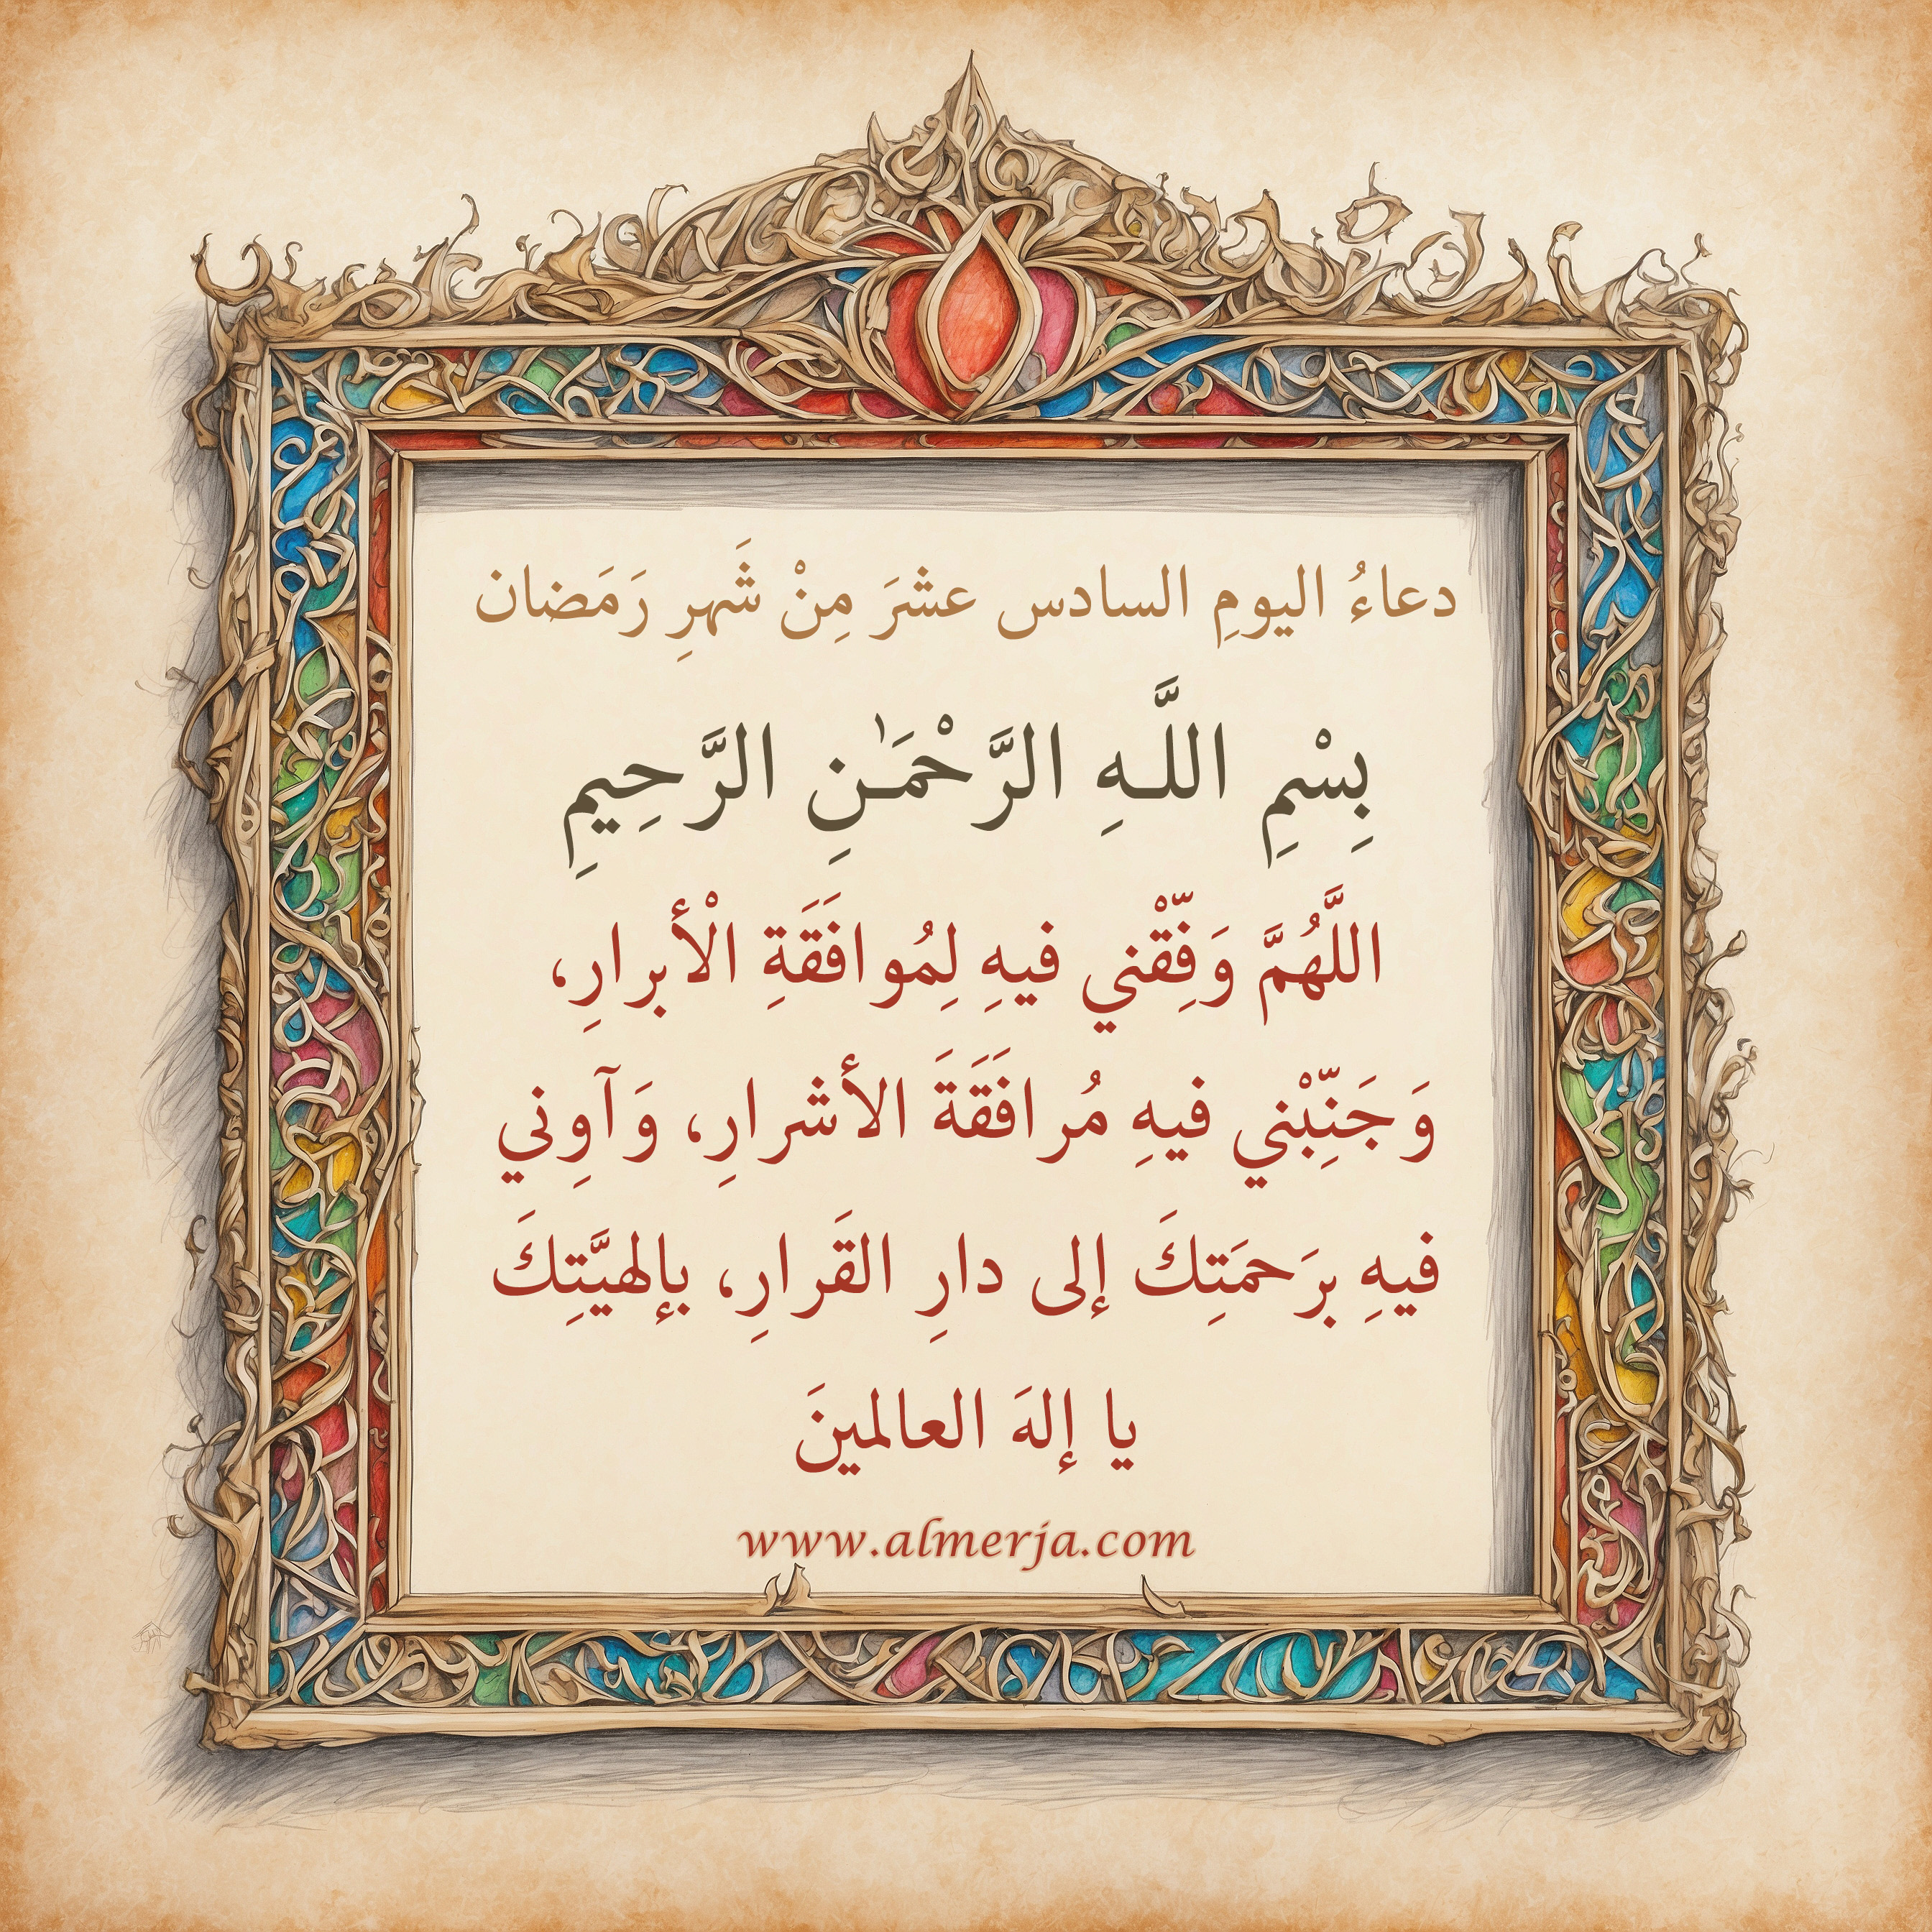 دعاءُ اليومِ السادس عشرَ مِنْ شَهرِ رَمَضان
بِسْمِ اللَّـهِ الرَّحْمَـٰنِ الرَّحِيمِ
اللَّهُمَّ وَفِّقْني فيهِ لِمُوافَقَةِ الْأبرارِ،
وَجَنِّبْني فيهِ مُرافَقَةَ الأشرارِ، وَآوِني
فيهِ برَحمَتِكَ إلى دارِ القَرارِ، بإلهيَّتِكَ
يا إلهَ العالمينَ
www.almerja.com